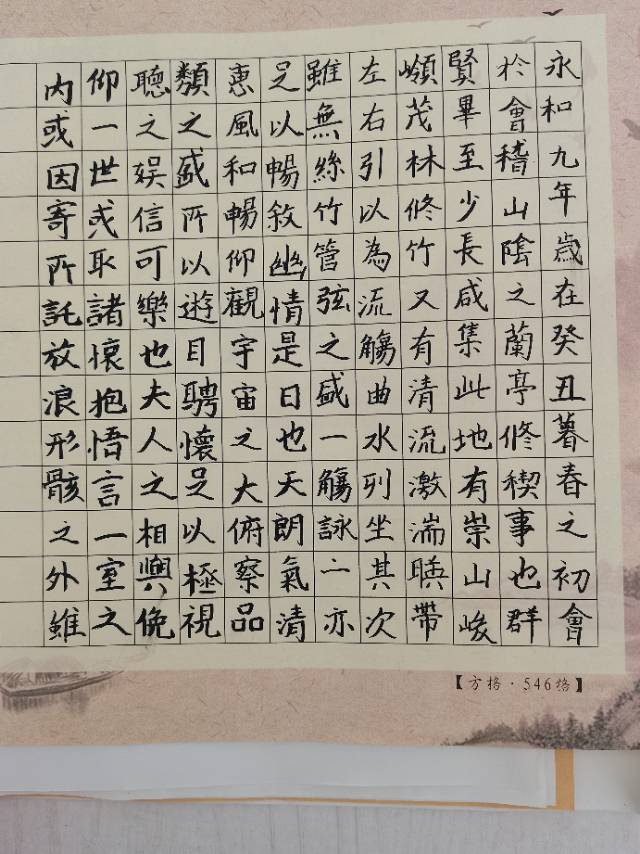 永和九年歲在癸丑暮春之初會
於會稽山陰之蘭亭修禊事也群
賢畢至少長咸集此地有崇山峻
嶺茂林修竹又有清流激湍暎帶
左右引以為流觴曲水列坐其次
雖無絲竹管弦之盛一觴詠二亦
足以暢敘幽情是日也天朗氣清
惠風和暢仰觀宇宙之大俯察品
類之盛所以遊目騁懷足以極視
聽之娛信可樂也夫人之相與俛
仰一世或取諸懷抱悟言一室之
內或因寄所託放浪形骸之外雖
【方格·546格】